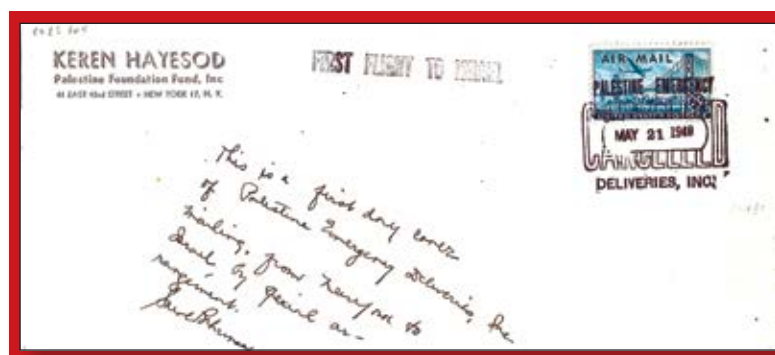 KEREN HAYESOD
Palestine Foundation Fund, Inc
41 EAST 42nd STREET • NEW YORK 17, N. Y.
FIRST FLIGHT TO ISRAEL
AIR MAIL
PALESTINE EMERGENCY
MAY 21 1948
CANCELLED
DELIVERIES, INC.
This is a first day cover
of Palestine Emergency Deliveries, Inc
mailing, from New York to
Israel by special ar-
rangement.